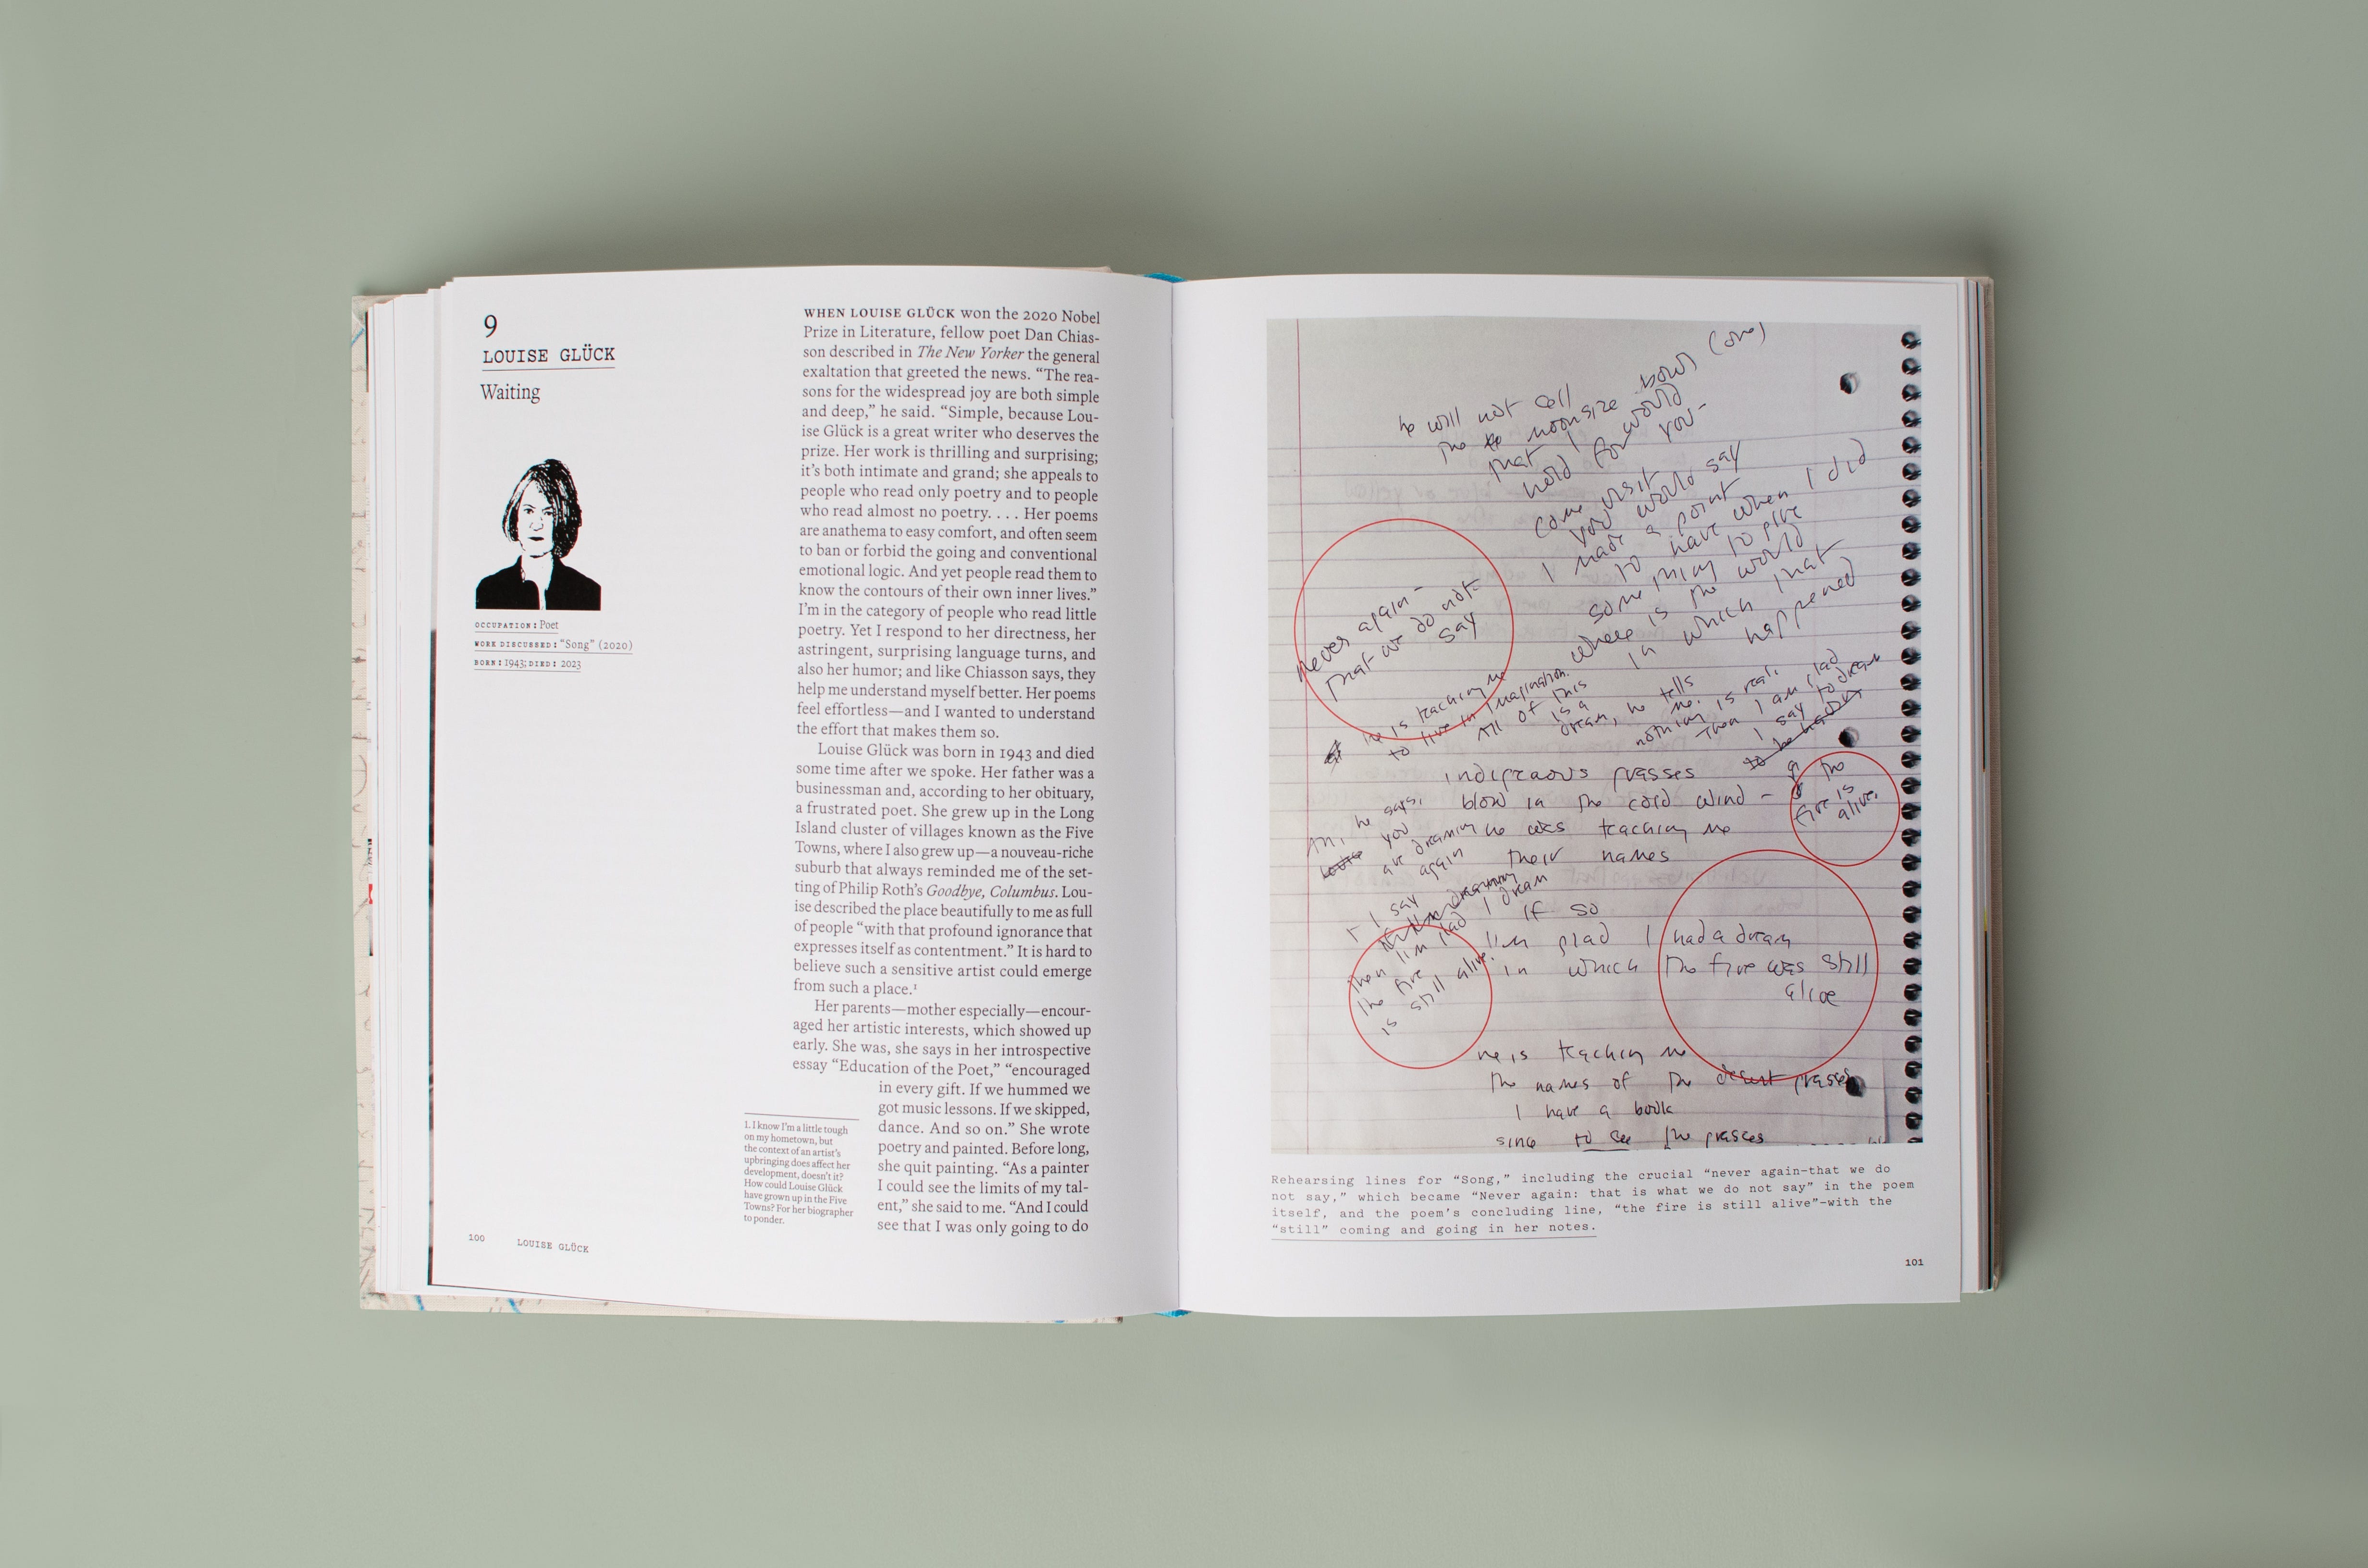 9
LOUISE GLÜCK
Waiting
OCCUPATION: Poet
WORK DISCUSSED: “Song” (2020)
BORN: 1943; DIED: 2023
WHEN LOUISE GLÜCK won the 2020 Nobel
Prize in Literature, fellow poet Dan Chias-
son described in The New Yorker the general
exaltation that greeted the news. “The rea-
sons for the widespread joy are both simple
and deep,” he said. “Simple, because Lou-
ise Glück is a great writer who deserves the
prize. Her work is thrilling and surprising;
it’s both intimate and grand; she appeals to
people who read only poetry and to people
who read almost no poetry. . . . Her poems
are anathema to easy comfort, and often seem
to ban or forbid the going and conventional
emotional logic. And yet people read them to
know the contours of their own inner lives.”
I’m in the category of people who read little
poetry. Yet I respond to her directness, her
astringent, surprising language turns, and
also her humor; and like Chiasson says, they
help me understand myself better. Her poems
feel effortless—and I wanted to understand
the effort that makes them so.
Louise Glück was born in 1943 and died
some time after we spoke. Her father was a
businessman and, according to her obituary,
a frustrated poet. She grew up in the Long
Island cluster of villages known as the Five
Towns, where I also grew up—a nouveau-riche
suburb that always reminded me of the set-
ting of Philip Roth’s Goodbye, Columbus. Lou-
ise described the place beautifully to me as full
of people “with that profound ignorance that
expresses itself as contentment.” It is hard to
believe such a sensitive artist could emerge
from such a place.¹
Her parents—mother especially—encour-
aged her artistic interests, which showed up
early. She was, she says in her introspective
essay “Education of the Poet,” “encouraged
in every gift. If we hummed we
got music lessons. If we skipped,
dance. And so on.” She wrote
poetry and painted. Before long,
she quit painting. “As a painter
I could see the limits of my tal-
ent,” she said to me. “And I could
see that I was only going to do
1. I know I’m a little tough
on my hometown, but
the context of an artist’s
upbringing does affect her
development, doesn’t it?
How could Louise Glück
have grown up in the Five
Towns? For her biographer
to ponder.
100 LOUISE GLÜCK
he will not sell
the moonsize bowl (one)
that I would
hold for you-
come visit
you would say
I made a point
to have when I did
something to give
where is the world
in which that
happened
never again-
that we do not
say
he is teaching me
to live in imagination.
All of this
is a
dream, he tells
me. nothing is real.
Then I am glad
I say to dream
indigenous grasses
blow in the cold wind -
the
fire is
alive.
Ah, he says,
you
are dreaming
again
he was teaching me
their names
I say
then I'm glad I dream
the fire
is still alive.
if so
I'm glad I had a dream
in which the fire was still
alive
he is teaching me
the names of the desert grasses
I have a book
since to see the grasses
Rehearsing lines for “Song,” including the crucial “never again—that we do
not say,” which became “Never again: that is what we do not say” in the poem
itself, and the poem’s concluding line, “the fire is still alive”—with the
“still” coming and going in her notes.
101